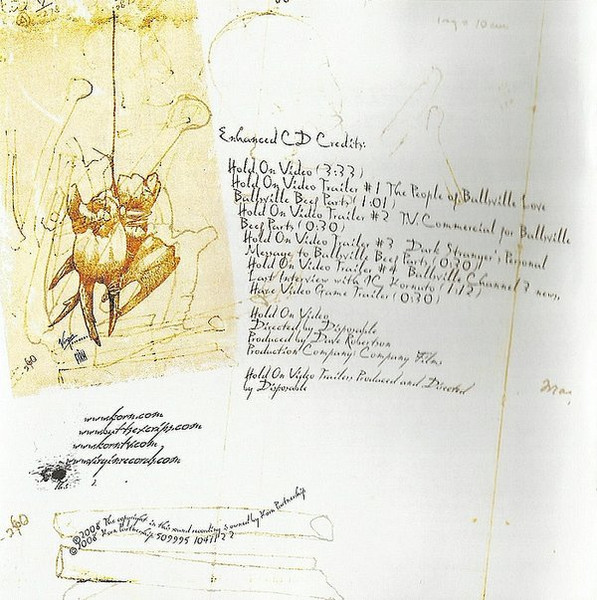 Enhanced CD Credits:
Hold On Video (3:33)
Hold On Video Trailer #1 The People of Ballsville Love
Ballsville Beef Parts (1:01)
Hold On Video Trailer #2 TV Commercial for Ballsville
Beef Parts (0:30)
Hold On Video Trailer #3 Dark Stranger's Personal
Message to Ballsville Beef Parts (0:30)
Hold On Video Trailer #4 Ballsville Channel 3 news,
Last Interview with JC Kornuto (1:12)
Haze Video Game Trailer (0:30)
Hold On Video
Directed by Disposable
Produced by Dave Robertson
Production Company: Company Films
Hold On Video Trailers Produced and Directed
by Disposable
www.korn.com
www.korntv.com
www.virginrecords.com
©2008 The copyright in this sound recording is owned by Korn Partnership
©2008 Korn Partnership 509995